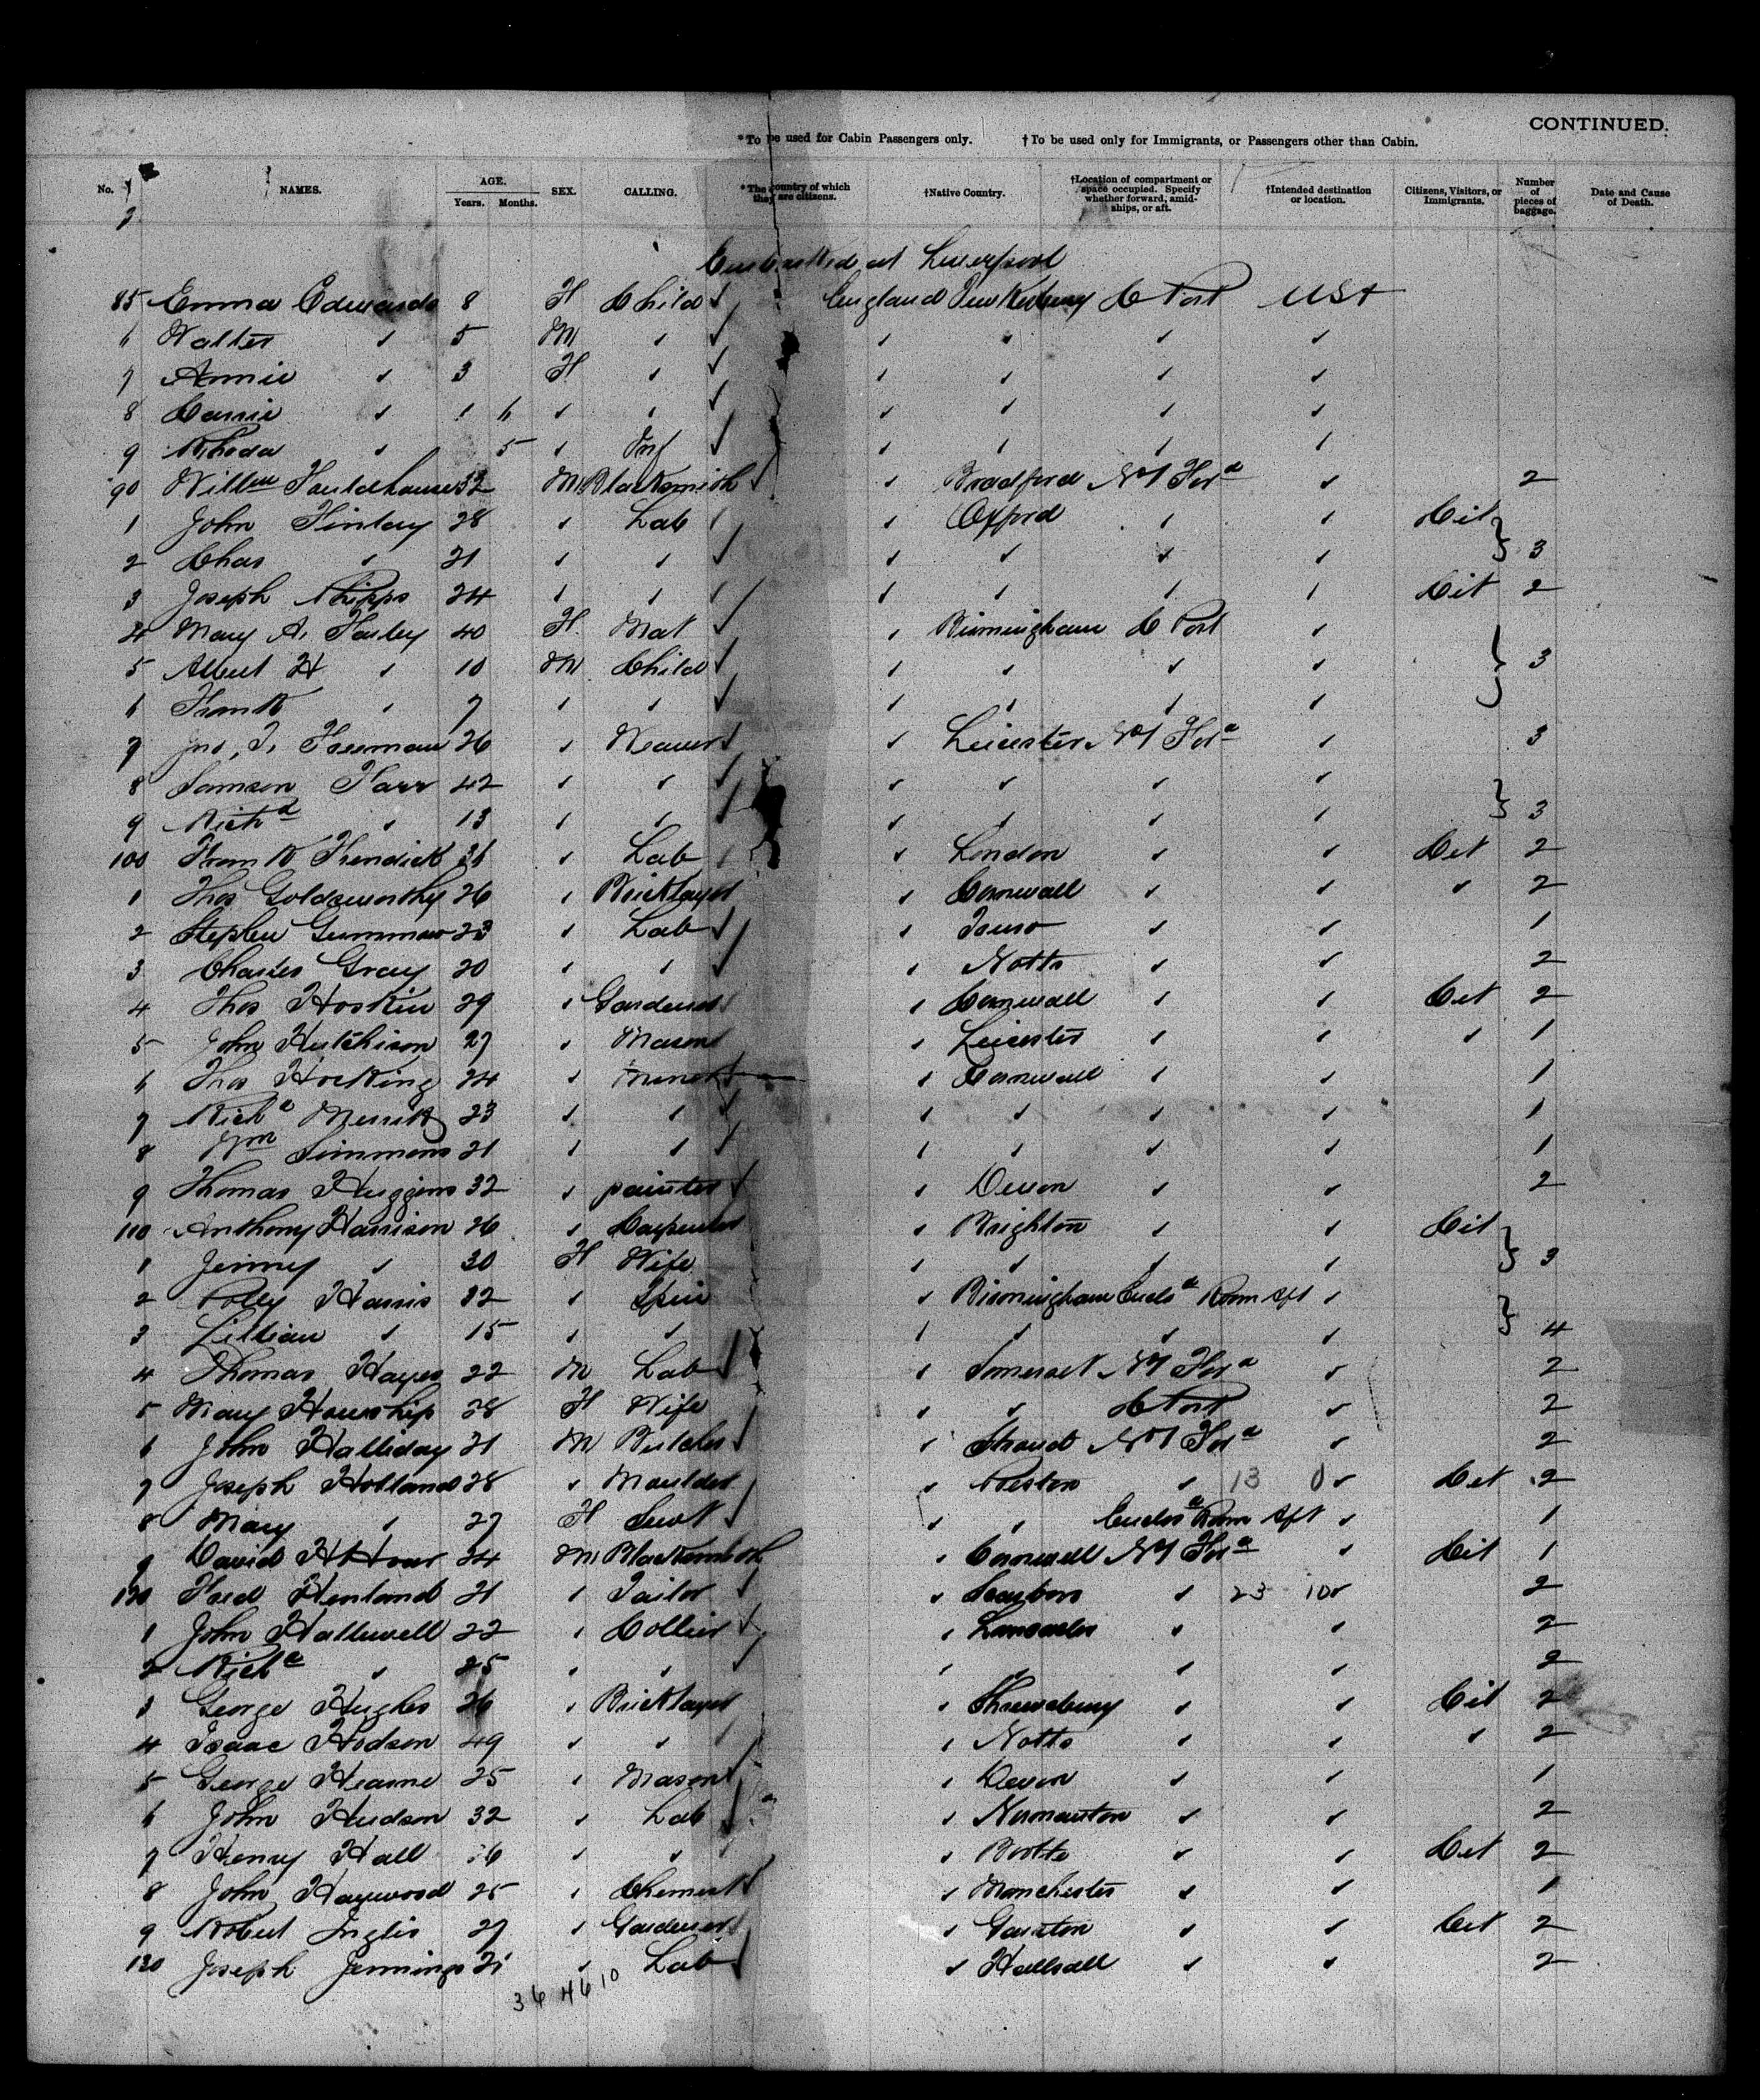 CONTINUED.
*To be used for Cabin Passengers only. †To be used only for Immigrants, or Passengers other than Cabin.
No. NAMES. AGE. Years. Months. SEX. CALLING. *The country of which they are citizens. †Native Country. †Location of compartment or space occupied. Specify whether forward, amidships, or aft. †Intended destination or location. Citizens, Visitors, or Immigrants. Number of pieces of baggage. Date and Cause of Death.
Embarked at Liverpool
85 Emma Edwards 8 F Child ✓ England Tewkesbury C Port USA
6 Walter ✓ 5 M ✓ ✓ ✓ ✓ ✓ ✓
7 Annie ✓ 3 F ✓ ✓ ✓ ✓ ✓ ✓
8 ✓ 1 6 ✓ ✓ ✓ ✓ ✓ ✓ ✓
9 Rhoda ✓ 5 ✓ Inf ✓ ✓ ✓ ✓ ✓
90 Willm Fauldhouse 32 M Blacksmith ✓ ✓ Bradford No 1 For d ✓ 2
1 John Finlay 28 ✓ Lab ✓ ✓ Oxford ✓ ✓ Cit
2 Chas ✓ 21 ✓ ✓ ✓ ✓ ✓ ✓ ✓ } 3
3 Joseph Phipps 24 ✓ ✓ ✓ ✓ ✓ ✓ ✓ Cit 2
4 Mary A. Farley 40 F. Mat ✓ ✓ Birmingham C Port ✓
5 Albert H ✓ 10 M Child ✓ ✓ ✓ ✓ ✓ } 3
6 Frank ✓ 7 ✓ ✓ ✓ ✓ ✓ ✓ ✓
7 Jno. T. Freeman 26 ✓ Weaver ✓ ✓ Leicester No 1 For d ✓ 3
8 Samson Farr 42 ✓ ✓ ✓ ✓ ✓ ✓ ✓
9 Richd ✓ 13 ✓ ✓ ✓ ✓ ✓ ✓ ✓ } 3
100 Frank Fendick ✓ Lab ✓ ✓ London ✓ ✓ Cit 2
1 Thos Goldsworthy 26 ✓ Bricklayer ✓ Cornwall ✓ ✓ ✓ 2
2 Stephen 23 ✓ Lab ✓ ✓ Truro ✓ ✓ 1
3 Charles Gray 20 ✓ ✓ ✓ ✓ Notts ✓ ✓ 2
4 Thos Hoskin 29 ✓ Gardener ✓ Cornwall ✓ ✓ Cit 2
5 John Hutchison 27 ✓ Mason ✓ Leicester ✓ ✓ ✓ 1
6 Thos Hocking 24 ✓ Miner ✓ ✓ Cornwall ✓ ✓ 1
7 Richd 23 ✓ ✓ ✓ ✓ ✓ ✓ ✓ 1
8 Wm Simmons 21 ✓ ✓ ✓ ✓ ✓ ✓ ✓ 1
9 Thomas Huggins 32 ✓ painter ✓ ✓ Devon ✓ ✓ 2
110 Anthony Harrison 26 ✓ Carpenter ✓ Brighton ✓ ✓ Cit
1 Jenny ✓ 30 F Wife ✓ ✓ ✓ ✓ } 3
2 Polly Harris 32 ✓ Spin ✓ Birmingham Enclsd Room Aft ✓
3 Lillian ✓ 15 ✓ ✓ ✓ ✓ ✓ ✓ } 4
4 Thomas Hayes 22 M Lab ✓ ✓ Somerset No 1 For d ✓ 2
5 Mary Howship 28 F Wife ✓ ✓ C Port ✓ 2
6 John Halliday 21 M Butcher ✓ ✓ Stroud No 1 For d ✓ 2
7 Joseph Holland 28 ✓ Moulder ✓ Preston ✓ 13 0 ✓ Cit 2
8 Mary ✓ 27 F Servt ✓ ✓ ✓ Enclosd Room Aft ✓ 1
9 David H Hoar 24 M Blacksmith ✓ Cornwall No 1 For d ✓ Cit 1
120 Fred Henland 21 ✓ Tailor ✓ ✓ Scarboro ✓ 23 10 ✓ 2
1 John Halliwell 22 ✓ Collier ✓ ✓ Lancaster ✓ ✓ 2
2 Richd ✓ 25 ✓ ✓ ✓ ✓ ✓ ✓ ✓ 2
3 George Hughes 26 ✓ Bricklayer ✓ Shrewsbury ✓ ✓ Cit 2
4 Isaac Hodson 49 ✓ ✓ ✓ ✓ Notts ✓ ✓ ✓ 2
5 George Hearne 25 ✓ Mason ✓ ✓ Devon ✓ ✓ 1
6 John Hudson 32 ✓ Lab ✓ ✓ Normanton ✓ ✓ 2
7 Henry Hall 36 ✓ ✓ ✓ ✓ Bootle ✓ ✓ Cit 2
8 John Haywood 25 ✓ Chemist ✓ ✓ Manchester ✓ ✓ 1
9 Robert Inglis 27 ✓ Gardener ✓ ✓ Garston ✓ ✓ Cit 2
130 Joseph Jennings 21 ✓ Lab ✓ ✓ Halsall ✓ ✓ 2
36 46 10